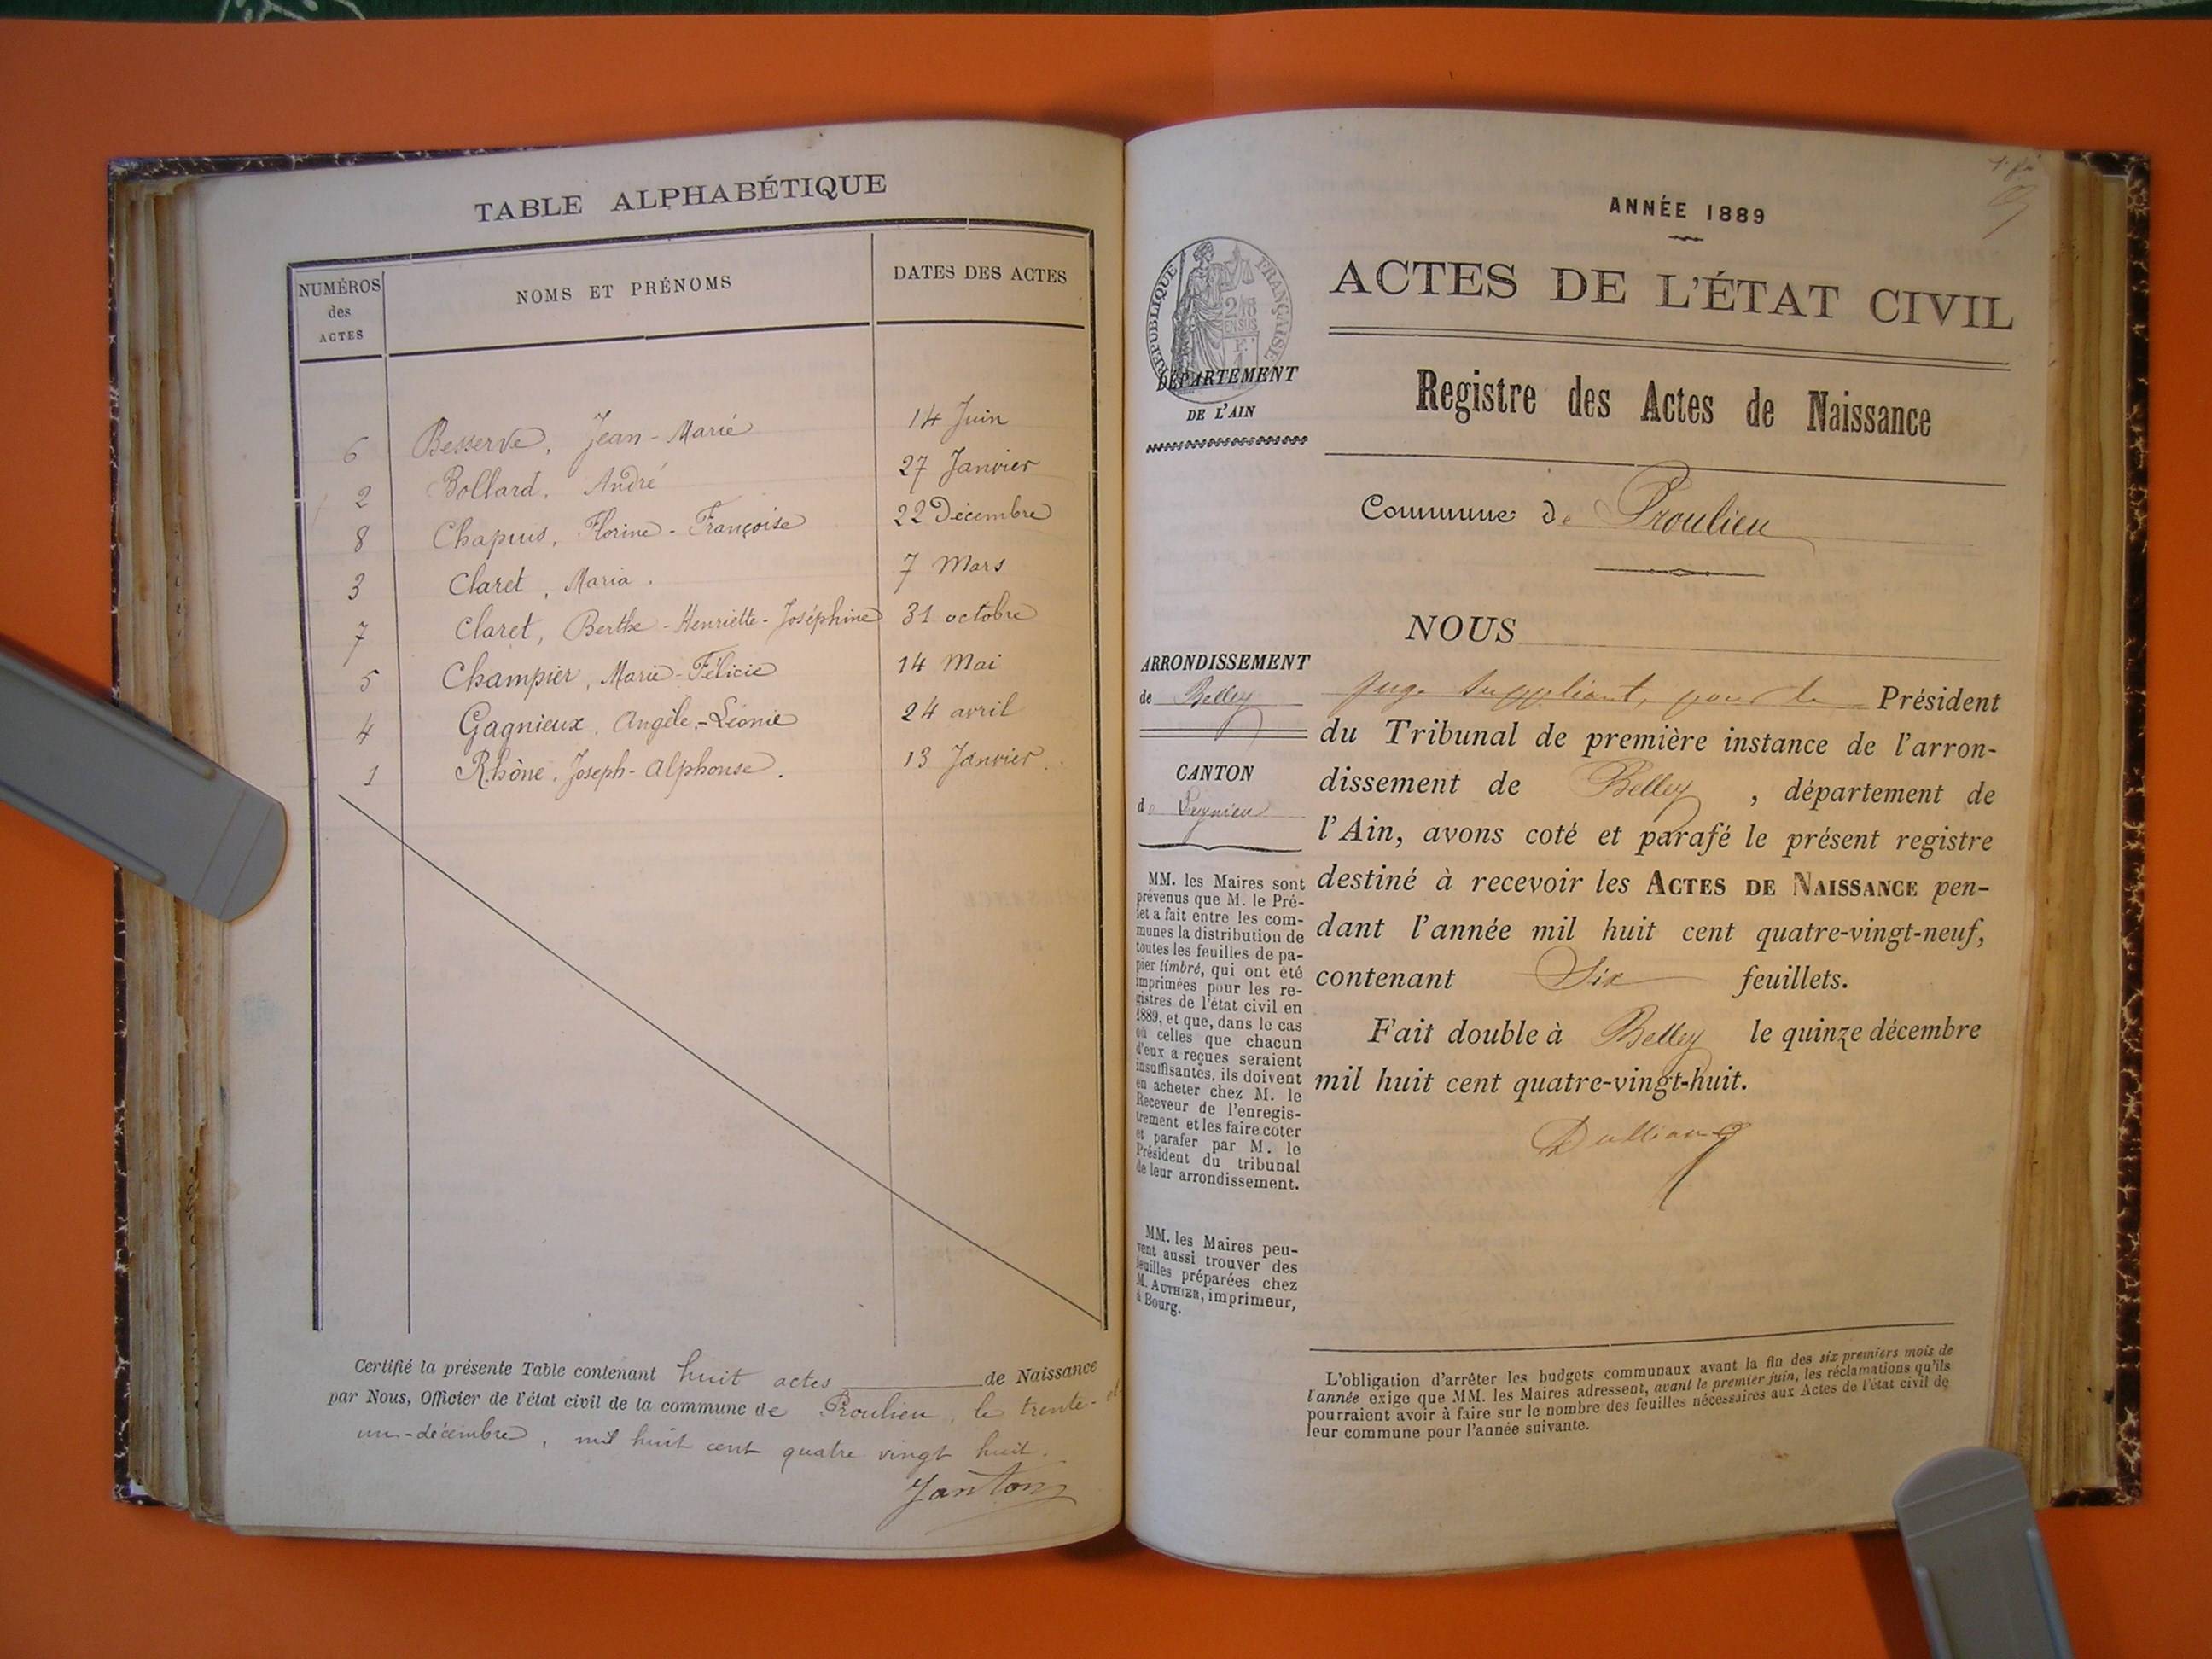 TABLE ALPHABÉTIQUE
NUMÉROS des ACTES NOMS ET PRÉNOMS DATES DES ACTES
6 Besserve, Jean-Marie 14 Juin
2 Bollard, André 27 Janvier
8 Chapuis, Florine-Françoise 22 Décembre
3 Claret, Maria. 7 Mars
7 Claret, Berthe-Henriette-Joséphine 31 octobre
5 Champier, Marie-Félicie 14 Mai
4 Gagnieux, Angèle-Léonie 24 avril
1 Rhône, Joseph-Alphonse. 13 Janvier.
Certifié la présente Table contenant huit actes de Naissance
par Nous, Officier de l'état civil de la commune de Proulieu, le trente-et
un-décembre, mil huit cent quatre vingt huit.
Janton
ANNÉE 1889
RÉPUBLIQUE FRANÇAISE
ACTES DE L'ÉTAT CIVIL
DÉPARTEMENT
DE L'AIN
Registre des Actes de Naissance
Commune de Proulieu
ARRONDISSEMENT
de Belley
CANTON
de Lagnieu
MM. les Maires sont
prévenus que M. le Pré-
fet a fait entre les com-
munes la distribution de
toutes les feuilles de pa-
pier timbré, qui ont été
imprimées pour les re-
gistres de l'état civil en
1889, et que, dans le cas
où celles que chacun
d'eux a reçues seraient
insuffisantes, ils doivent
en acheter chez M. le
Receveur de l'enregis-
trement et les faire coter
et parafer par M. le
Président du tribunal
de leur arrondissement.
MM. les Maires peu-
vent aussi trouver des
feuilles préparées chez
M. AUTHIER, imprimeur,
à Bourg.
NOUS
juge suppléant, pour le Président
du Tribunal de première instance de l'arron-
dissement de Belley, département de
l'Ain, avons coté et parafé le présent registre
destiné à recevoir les ACTES DE NAISSANCE pen-
dant l'année mil huit cent quatre-vingt-neuf,
contenant Six feuillets.
Fait double à Belley le quinze décembre
mil huit cent quatre-vingt-huit.
L'obligation d'arrêter les budgets communaux avant la fin des six premiers mois de
l'année exige que MM. les Maires adressent, avant le premier juin, les réclamations qu'ils
pourraient avoir à faire sur le nombre des feuilles nécessaires aux Actes de l'état civil de
leur commune pour l'année suivante.